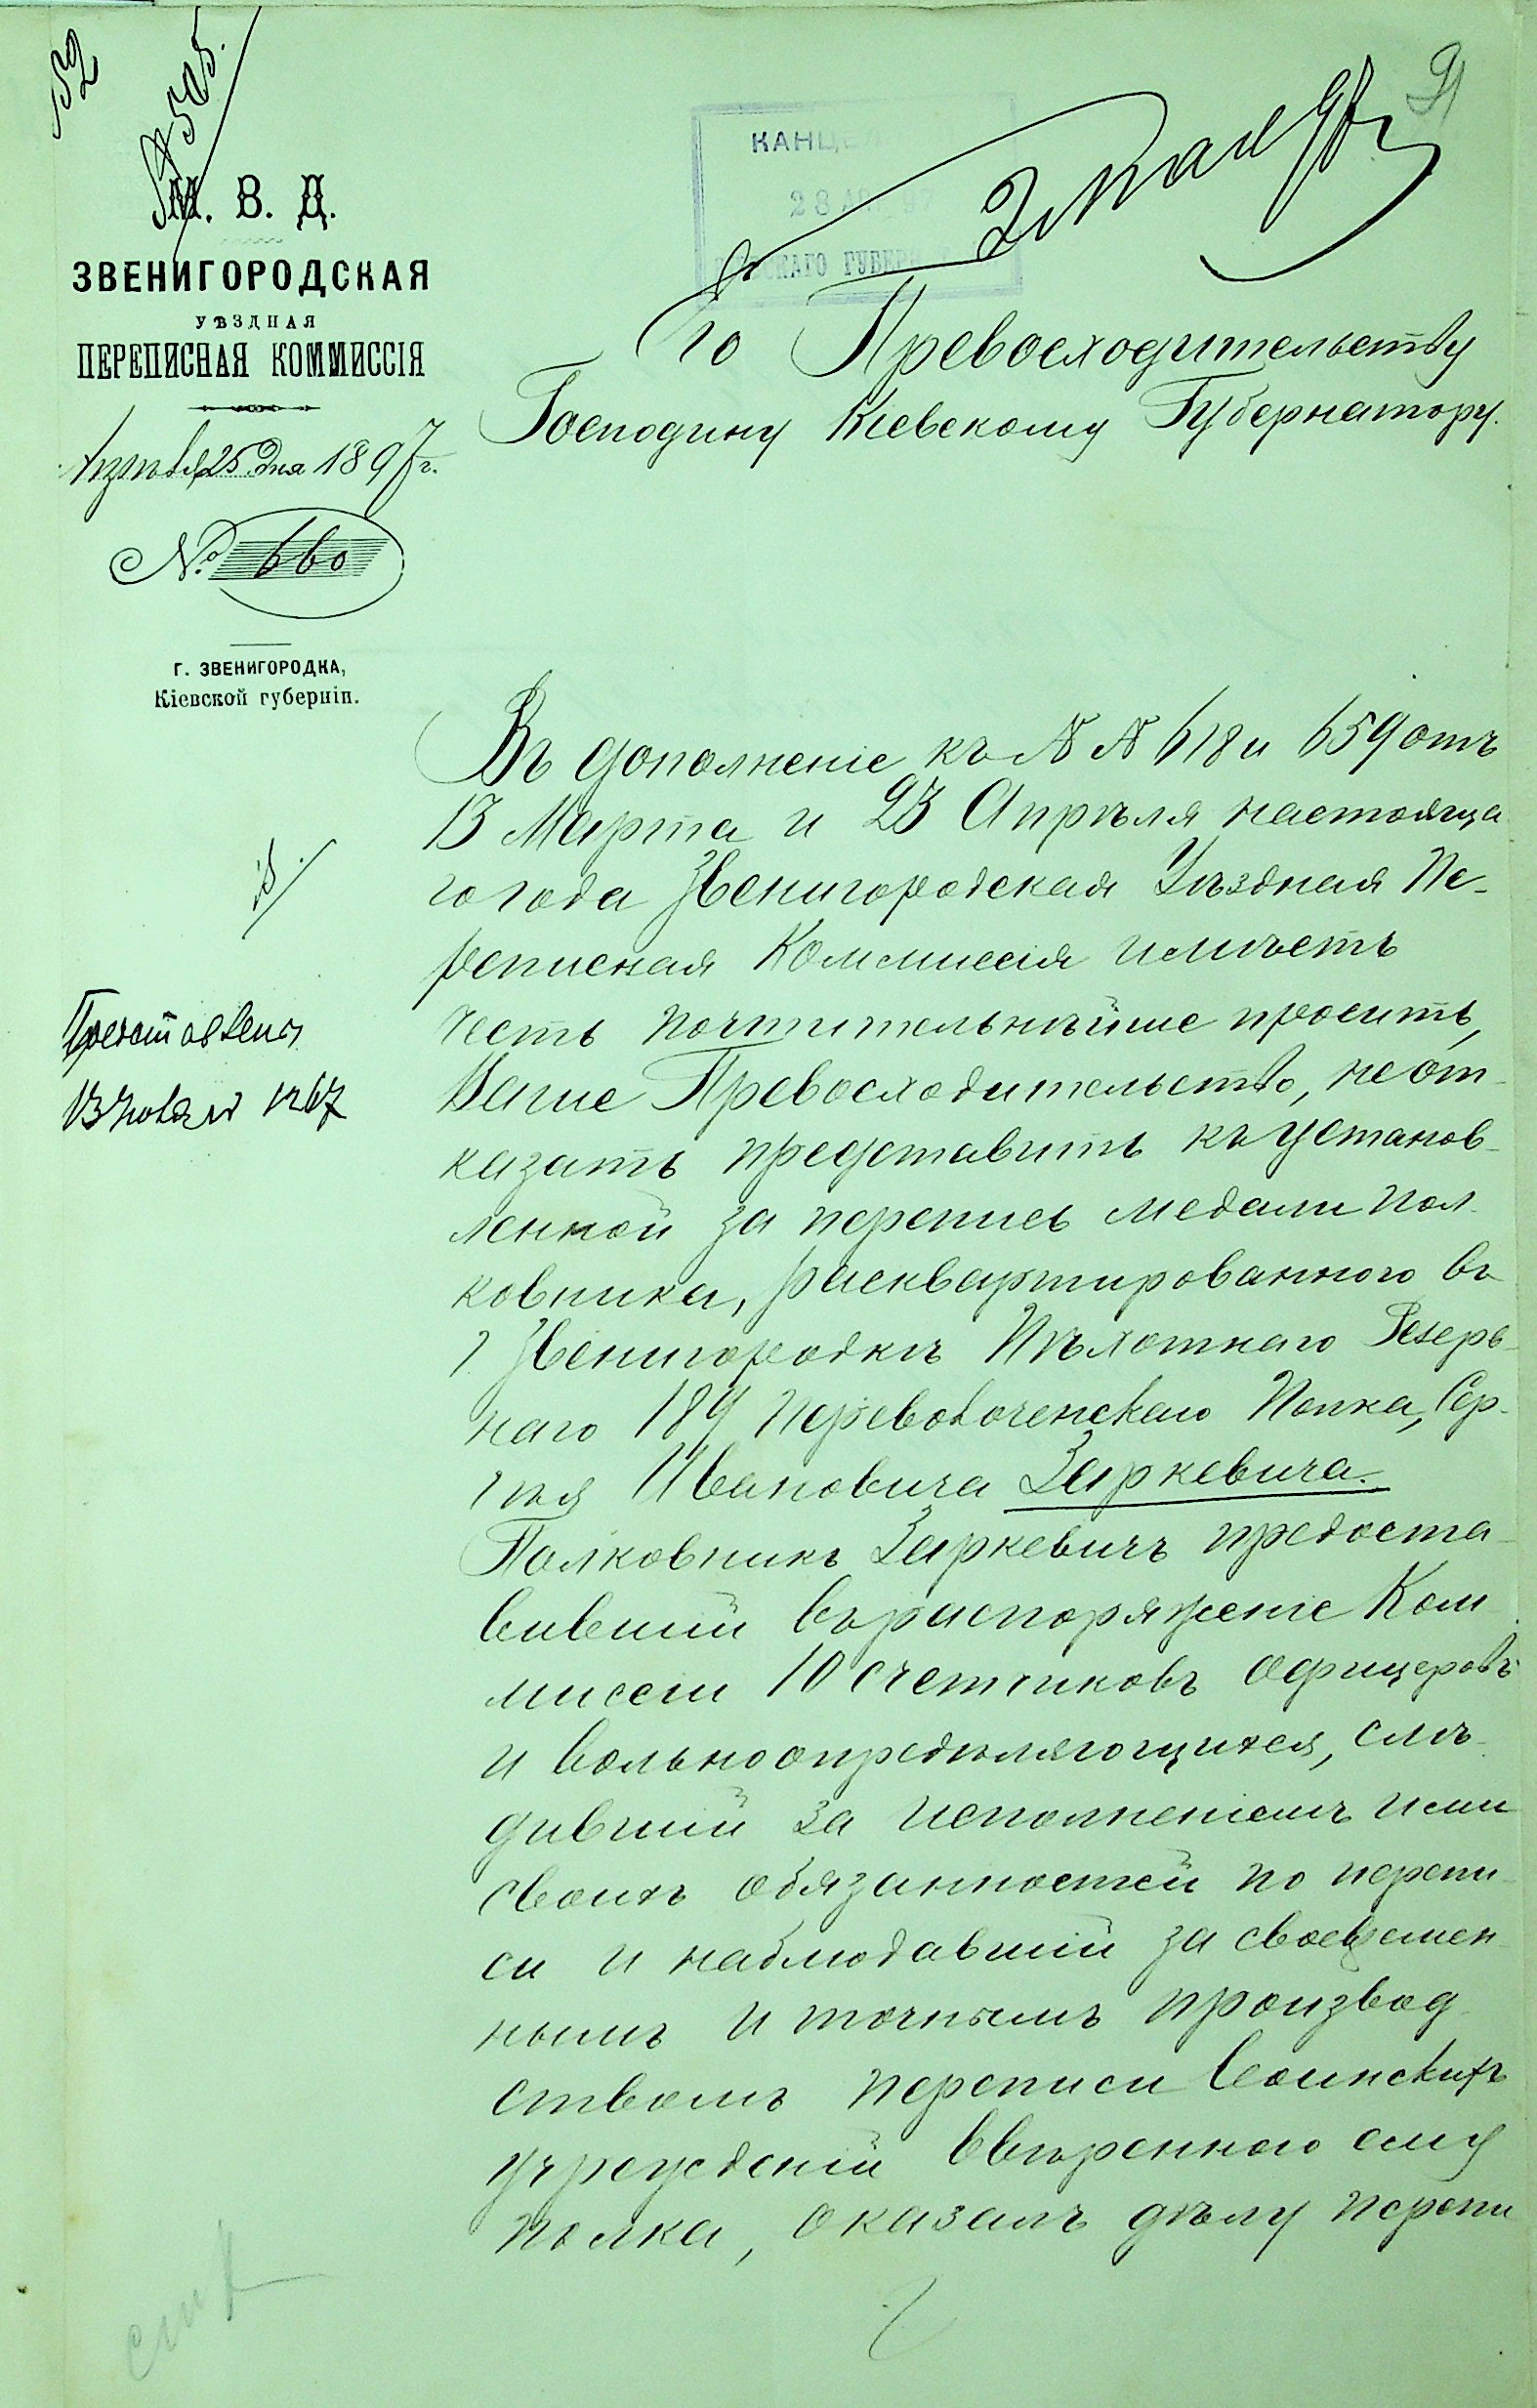 152
91
КАНЦ
28 АП 97
СКАГО ГУБЕР
2 мая 97
М. В. Д.
ЗВЕНИГОРОДСКАЯ
УѢЗДНАЯ
ПЕРЕПИСНАЯ КОММИССІЯ
Апрѣля 25 дня 1897 г.
№ 660
Г. ЗВЕНИГОРОДКА,
Кіевской губерніи.
Его Превосходительству
Господину Кіевскому Губернатору.
Въ дополненіе къ № № 618 и 659 отъ
13 Марта и 23 Апрѣля настояща
го года Звенигородская Уѣздная Пе-
реписная Коммиссія имѣетъ
честь почтительнѣйше просить,
Ваше Превосходительство, не от-
казать представить къ установ-
ленной за перепись медали Пол-
ковника, расквартированного въ
г. Звенигородкѣ Пѣхотнаго Резерв-
наго 189 Переволоченскаго Полка, Сер-
гѣя Ивановича Заркевича.
Полковникъ Заркевичъ предоста-
вившій въ распоряженіе Ком-
миссіи 10 счетчиковъ офицеровъ
и вольноопредѣляющихся, слѣ-
дившій за исполненіемъ ими
своихъ обязанностей по перепи-
си и наблюдавшій за своевремен-
нымъ и точнымъ производ-
ствомъ переписи воинскихъ
учрежденій ввѣренного ему
полка, оказалъ дѣлу перепи